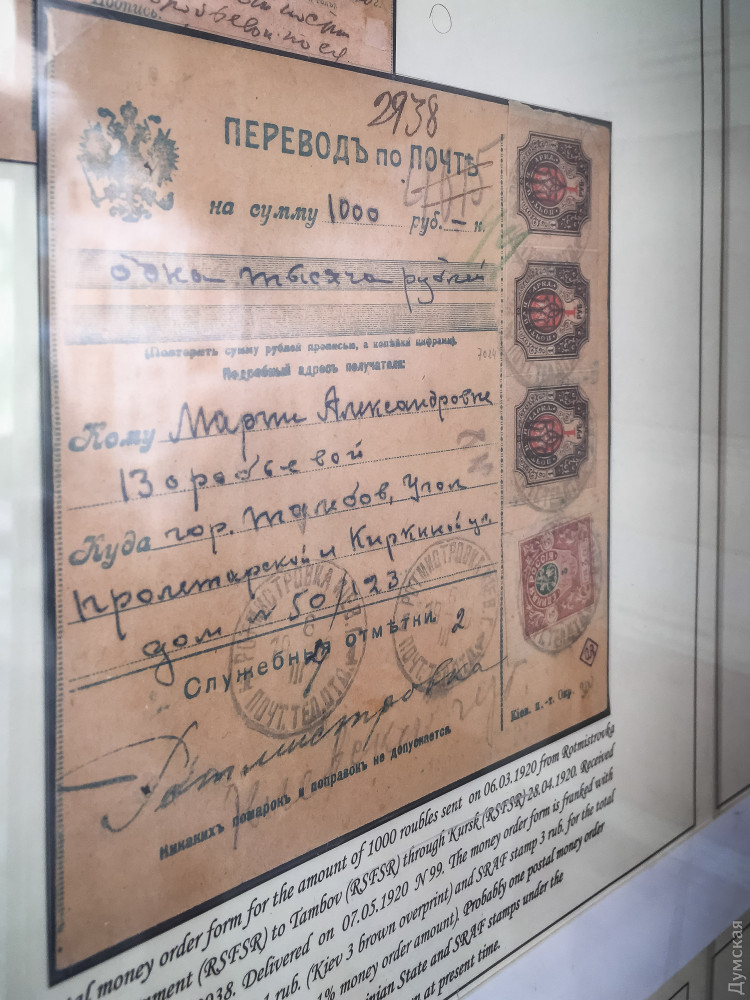 Подпись
2938
ПЕРЕВОДЪ по ПОЧТѢ
на сумму 1000 руб. — к.
одна тысяча рублей
(Повторить сумму рублей прописью, а копѣйки цифрами).
7024
Подробный адресъ получателя:
Кому Марии Александровне
Воробьевой
Куда гор. Тамбов, Угол
Пролетарской и Киркиной ул.
дом № 50/23
Служебныя отмѣтки
2
РОТМИСТРОВКА
ПОЧТ. ТЕЛ. ОТД.
Ротмистровка
Кіев. п.-т. Окр.
Никакихъ помарокъ и поправокъ не допускается.
money order form for the amount of 1000 roubles sent on 06.03.1920 from Rotmistrovka
(RSFSR) to Tambov (RSFSR) through Kursk (RSFSR) 28.04.1920. Received
Delivered on 07.05.1920 N 99. The money order form is franked with
rub. (Kiev 3 brown overprint) and SRAF stamp 3 rub. for the total
1% money order amount). Probably one postal money order
State and SRAF stamps under the
at present time.
Думская